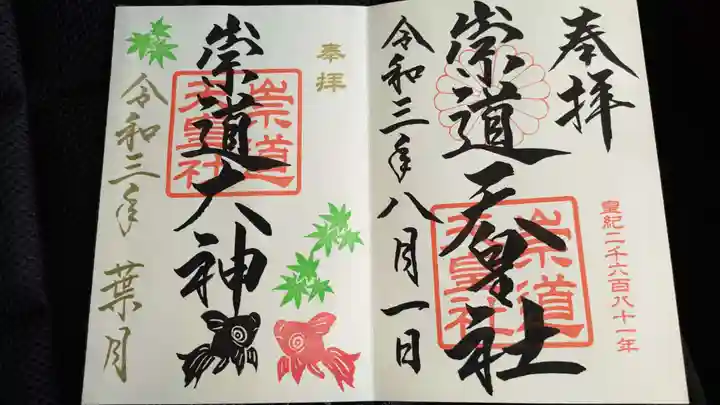 奉拝
崇道天皇社
崇道天皇社
皇紀二千六百八十一年
令和三年八月一日
奉拝
崇道大神
崇道天皇社
令和三年 葉月